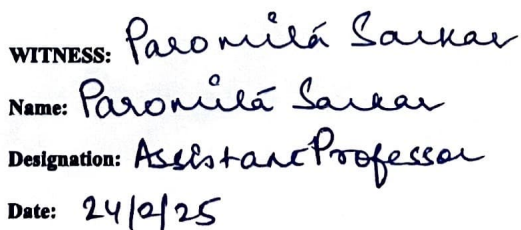 WITNESS: Paromita Sarkar
Name: Paromita Sarkar
Designation: Assistant Professor
Date: 24/2/25